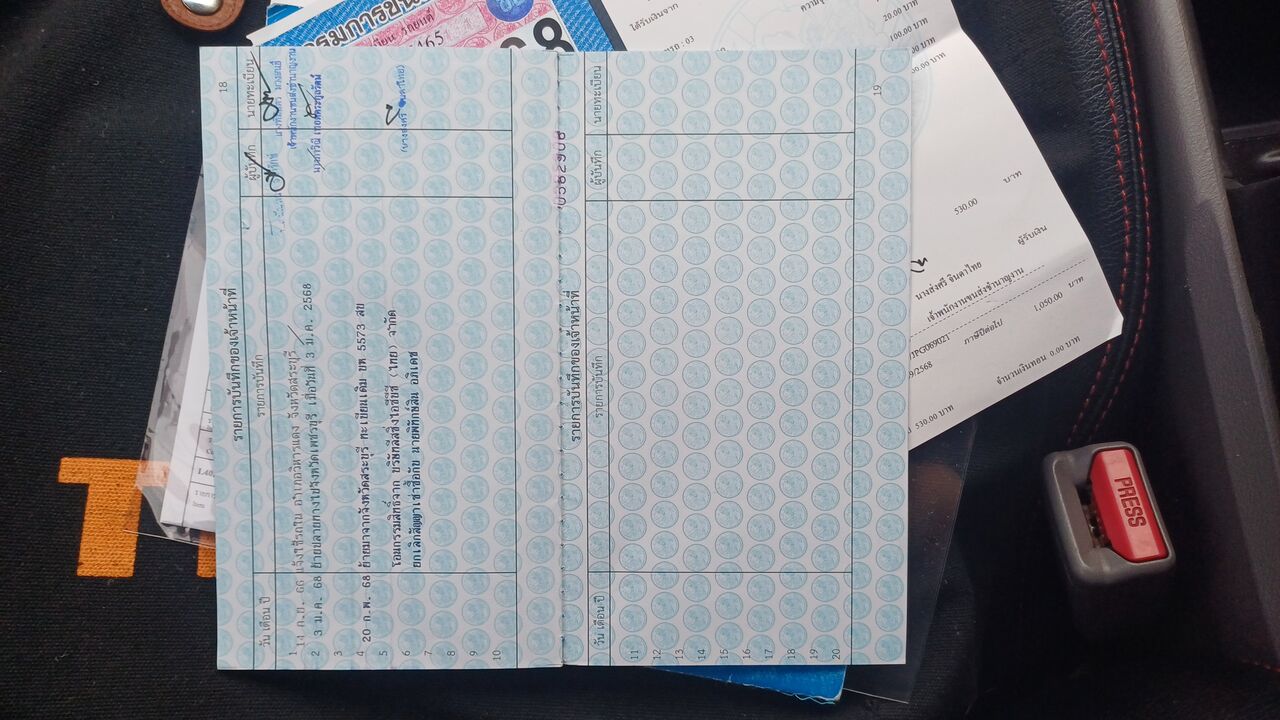 18
รายการบันทึกของเจ้าหน้าที่
วัน เดือน ปี รายการบันทึก ผู้บันทึก นายทะเบียน
1 14 ก.ย. 66 แจ้งใช้รถใน อำเภอวิหารแดง จังหวัดสระบุรี
เจ้าพนักงานขนส่งชำนาญงาน
2 3 ม.ค. 68 ย้ายปลายทางไปจังหวัดเพชรบุรี เมื่อวันที่ 3 ม.ค. 2568
3
4 20 ก.พ. 68 ย้ายมาจากจังหวัดสระบุรี ทะเบียนเดิม ขห 5573 สบ
5 โอนกรรมสิทธิ์จาก บริษัทลีสซิ่งไอซีบีซี (ไทย) จำกัด
6 ยกเลิกสัญญาเช่าซื้อกับ นายพิทักษ์สิน อภิเดช
(นางส่งศรี จินดาไทย)
7
8
9
10
19
รายการบันทึกของเจ้าหน้าที่
วัน เดือน ปี รายการบันทึก ผู้บันทึก นายทะเบียน
11
12
13
14
15
16
17
18
19
20
ได้รับเงินจาก
20.00 บาท
100.00 บาท
530.00 บาท
ผู้รับเงิน
นางส่งศรี จินดาไทย
เจ้าพนักงานขนส่งชำนาญงาน
ภาษีปีต่อไป 1,050.00 บาท
530.00 บาท จำนวนเงินทอน 0.00 บาท
PRESS